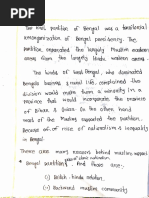 The first partition of Bengal was a territorial
reorganization of Bengal presidency. The
partition separated the largely Muslim eastern
areas from the largely Hindu western areas.
The hindus of West Bengal, who dominated
Bengal's business & rural life, complained that
division would make them a minority in a
province that would incorporate the province
of Bihar & Orissa. On the other hand
most of the Muslims supported the partition.
Because of rise of nationalism & inequality
in Bengal.
There are many reasons behind muslim support
Bengal partition. And those are:-
(i) British hindu relation.
(ii) Backward muslim community